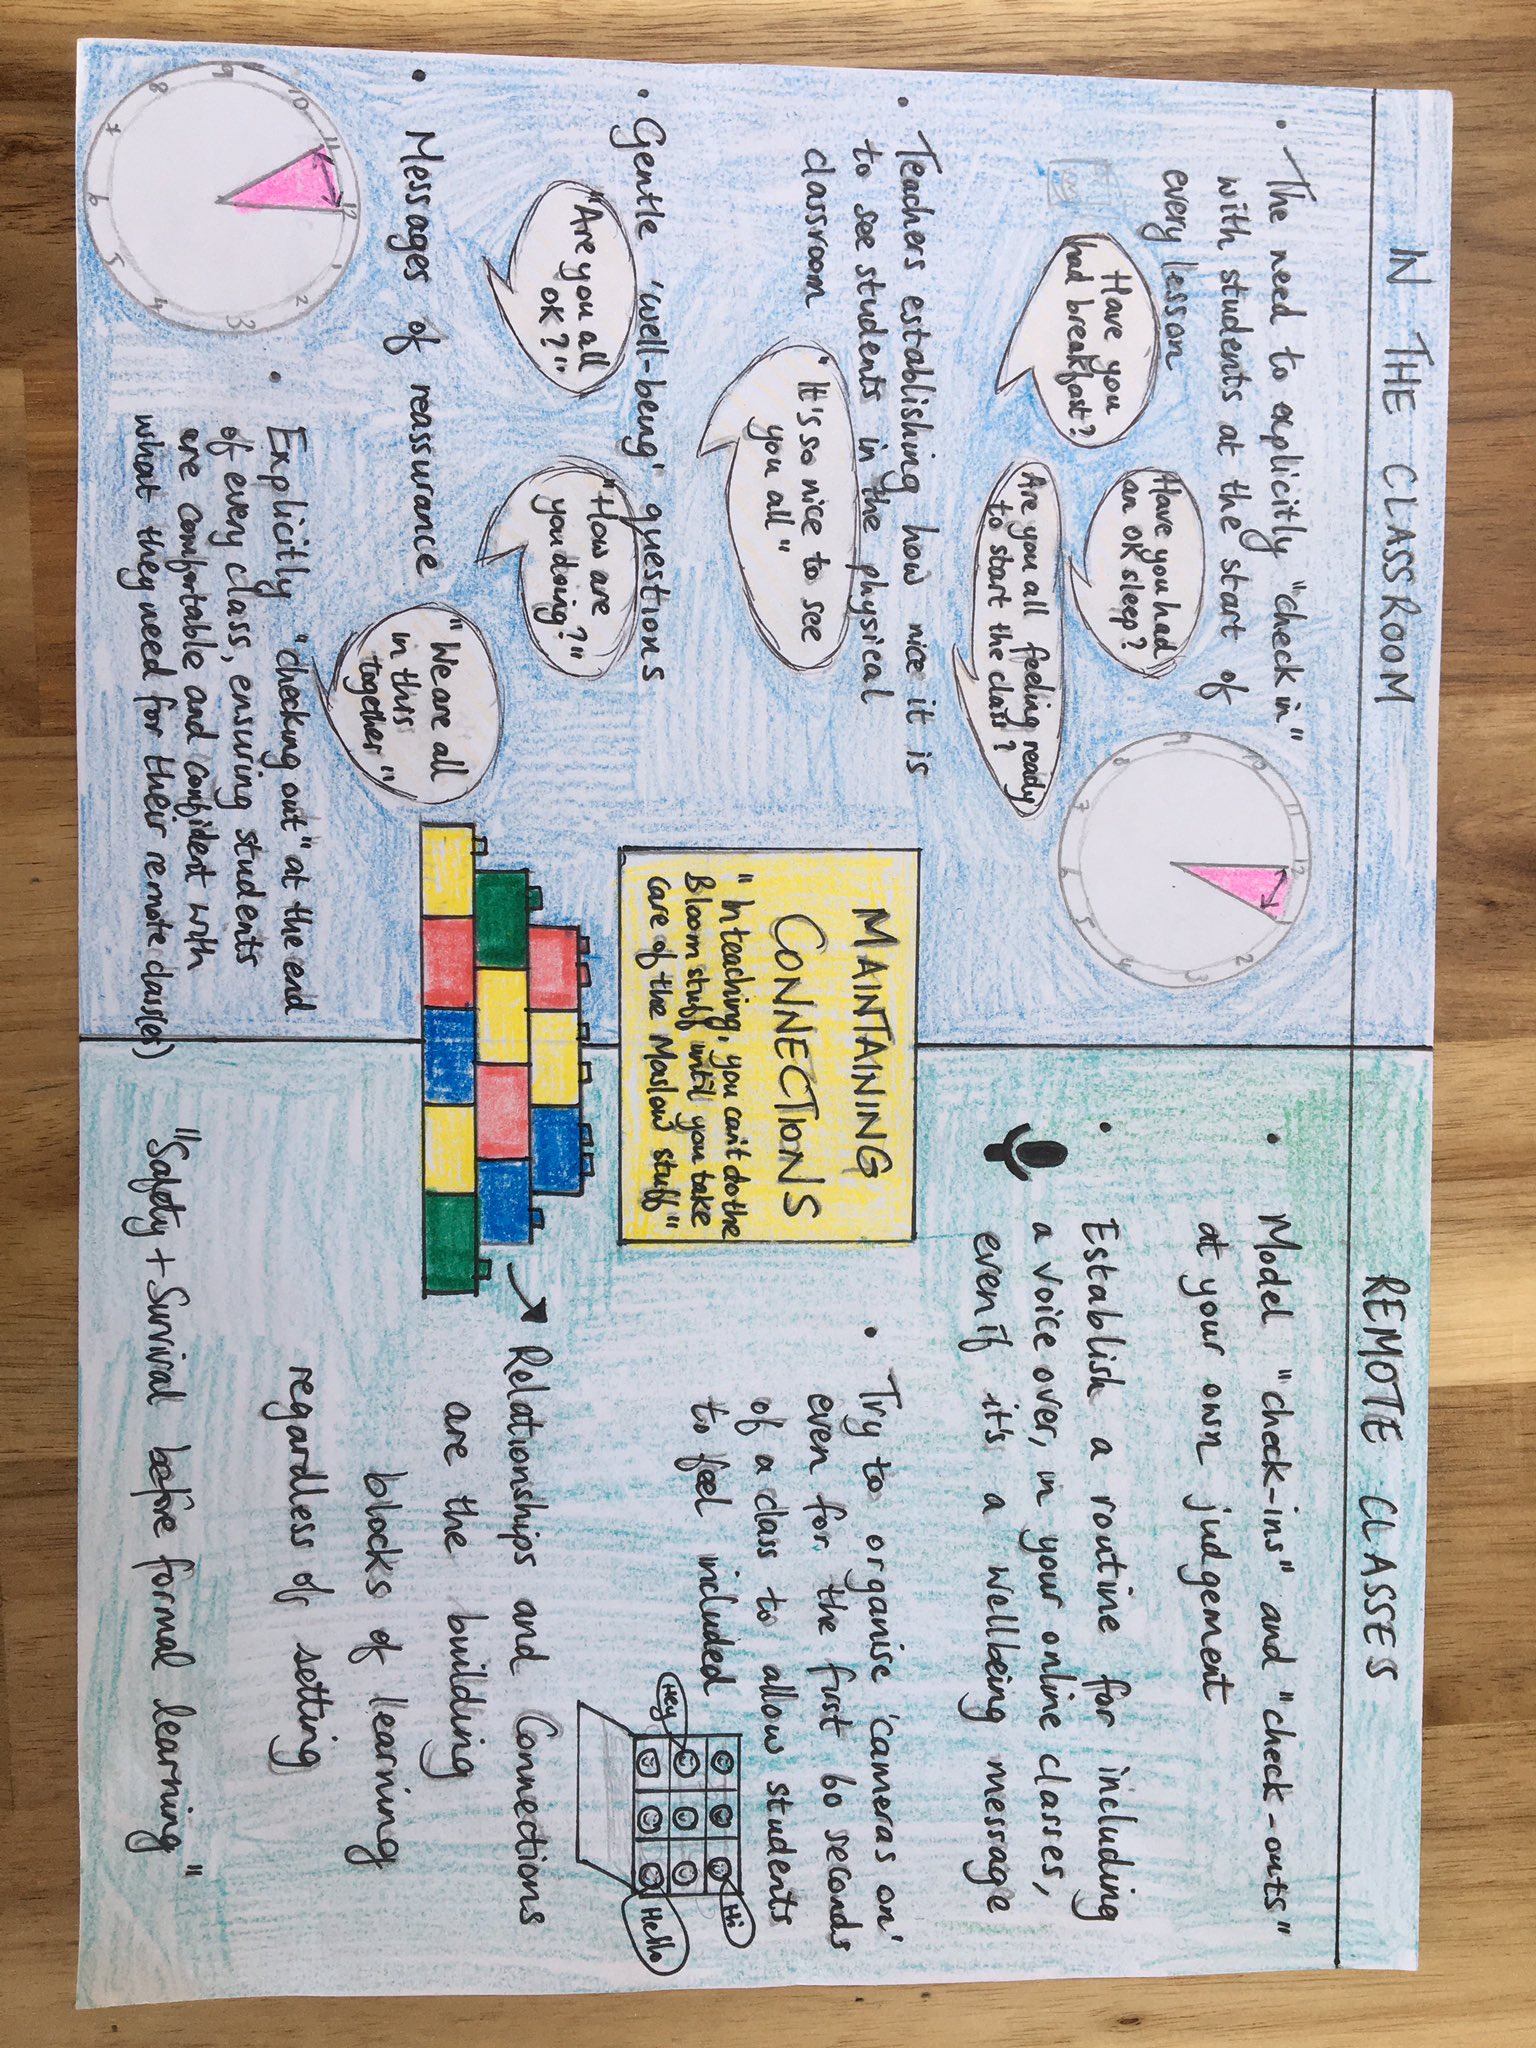 IN THE CLASSROOM
• The need to explicitly "check in"
with students at the start of
every lesson
Have you
had breakfast?
Have you had
an ok sleep?
Are you all feeling ready
to start the class?
12
11
10
9
8
7
6
5
4
3
2
• Teachers establishing how nice it is
to see students in the physical
classroom
"It's so nice to see
you all"
• Gentle 'well-being' questions
"Are you all
ok?"
"How are
you doing?"
• Messages of reassurance
"We are all
in this
together"
12
11
10
9
8
7
6
5
4
3
2
1
• Explicitly "checking out" at the end
of every class, ensuring students
are comfortable and confident with
what they need for their remote class(es)
MAINTAINING
CONNECTIONS
"In teaching, you can't do the
Bloom stuff until you take
care of the Maslow stuff"
REMOTE CLASSES
• Model "check-ins" and "check-outs"
at your own judgement
• Establish a routine for including
a voice over, in your online classes,
even if it's a wellbeing message
• Try to organise 'cameras on'
even for the first 60 seconds
of a class to allow students
to feel included
Hi
Hey
Hello
Relationships and Connections
are the building
blocks of learning
regardless of setting
"Safety + Survival before formal learning"